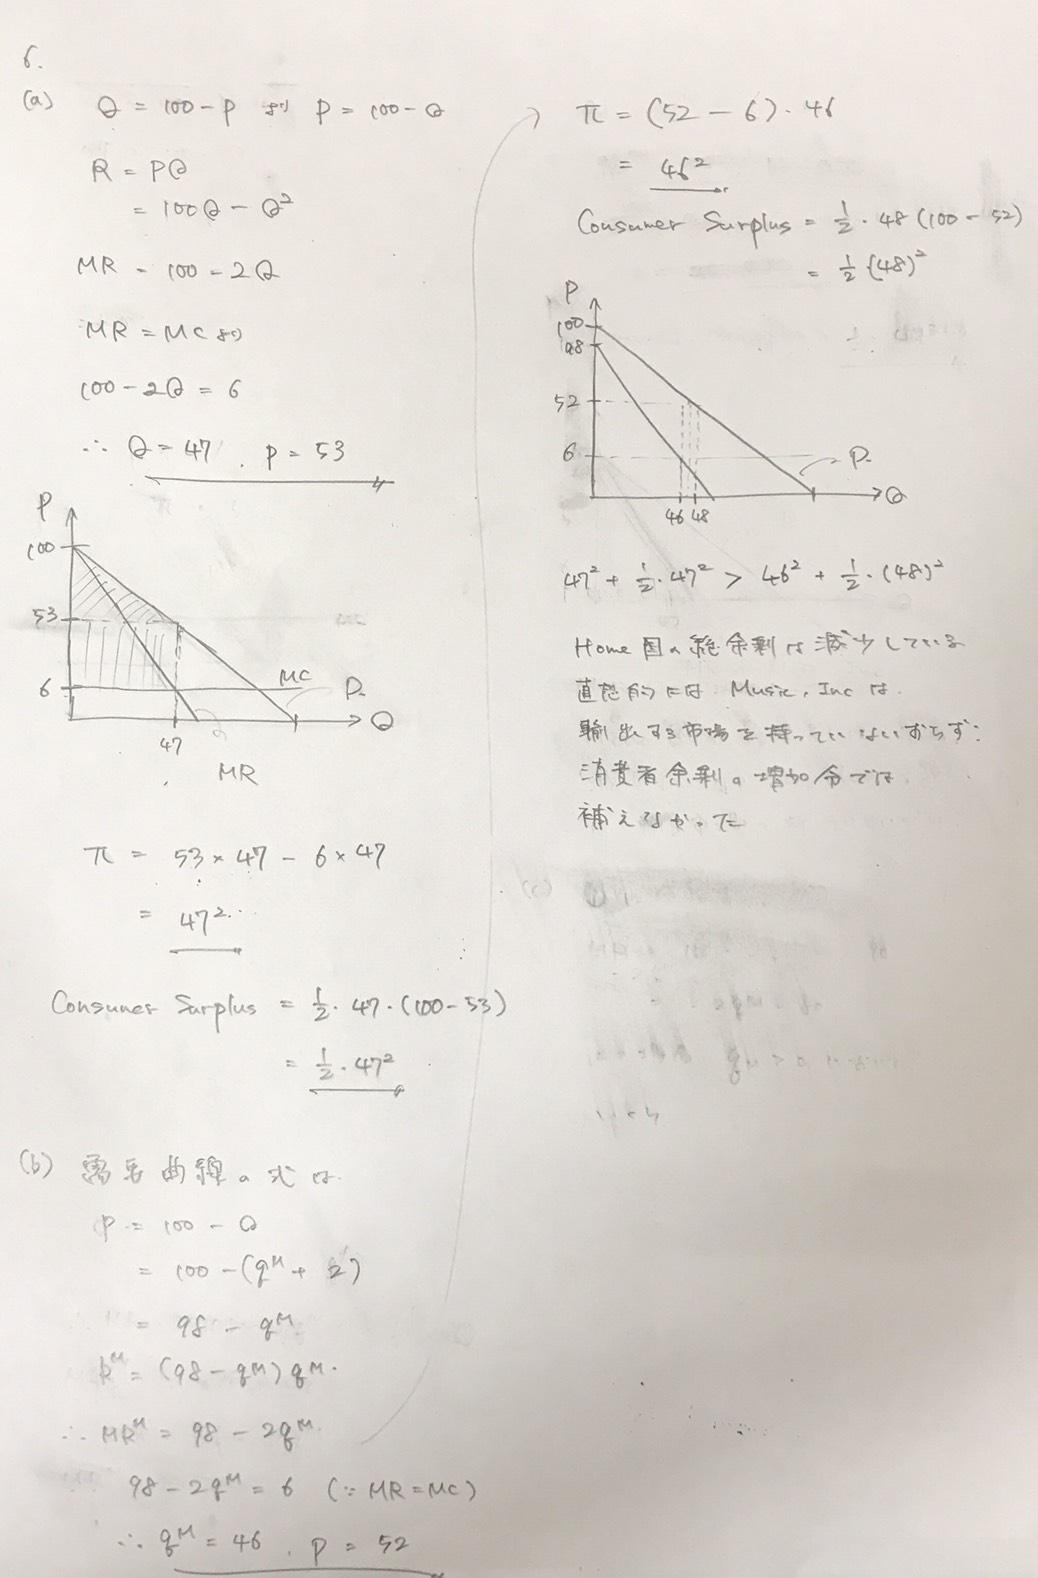 6.
(a) Q = 100 - P より P = 100 - Q
R = PQ
= 100Q - Q²
MR = 100 - 2Q
MR = MC より
100 - 2Q = 6
∴ Q = 47 . P = 53
P
100
53
6
MC
D
Q
47
MR
π = 53 × 47 - 6 × 47
= 47²
Consumer Surplus = 1/2 · 47 · (100 - 53)
= 1/2 · 47²
(b) 需要曲線の式は
P = 100 - Q
= 100 - (q^M + 2)
= 98 - q^M
R^M = (98 - q^M) q^M
∴ MR^M = 98 - 2q^M
98 - 2q^M = 6 (∵ MR = MC)
∴ q^M = 46 . P = 52
π = (52 - 6) · 46
= 46²
Consumer Surplus = 1/2 · 48 (100 - 52)
= 1/2 (48)²
P
100
98
52
6
D
Q
46 48
47² + 1/2 · 47² > 46² + 1/2 · (48)²
Home国の総余剰は減少している
直感的には Music, Inc は
輸出する市場を持っていない
消費者余剰の増加分では
補えなかった